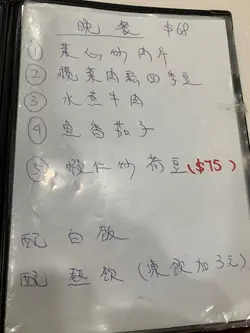 晚餐 $68
① 菜心炒肉片
② 欖菜肉鬆四季豆
③ 水煮牛肉
④ 魚香茄子
⑤ 蝦仁炒荷豆 ($75)
配 白飯
配 熱飲 (凍飲加3元)